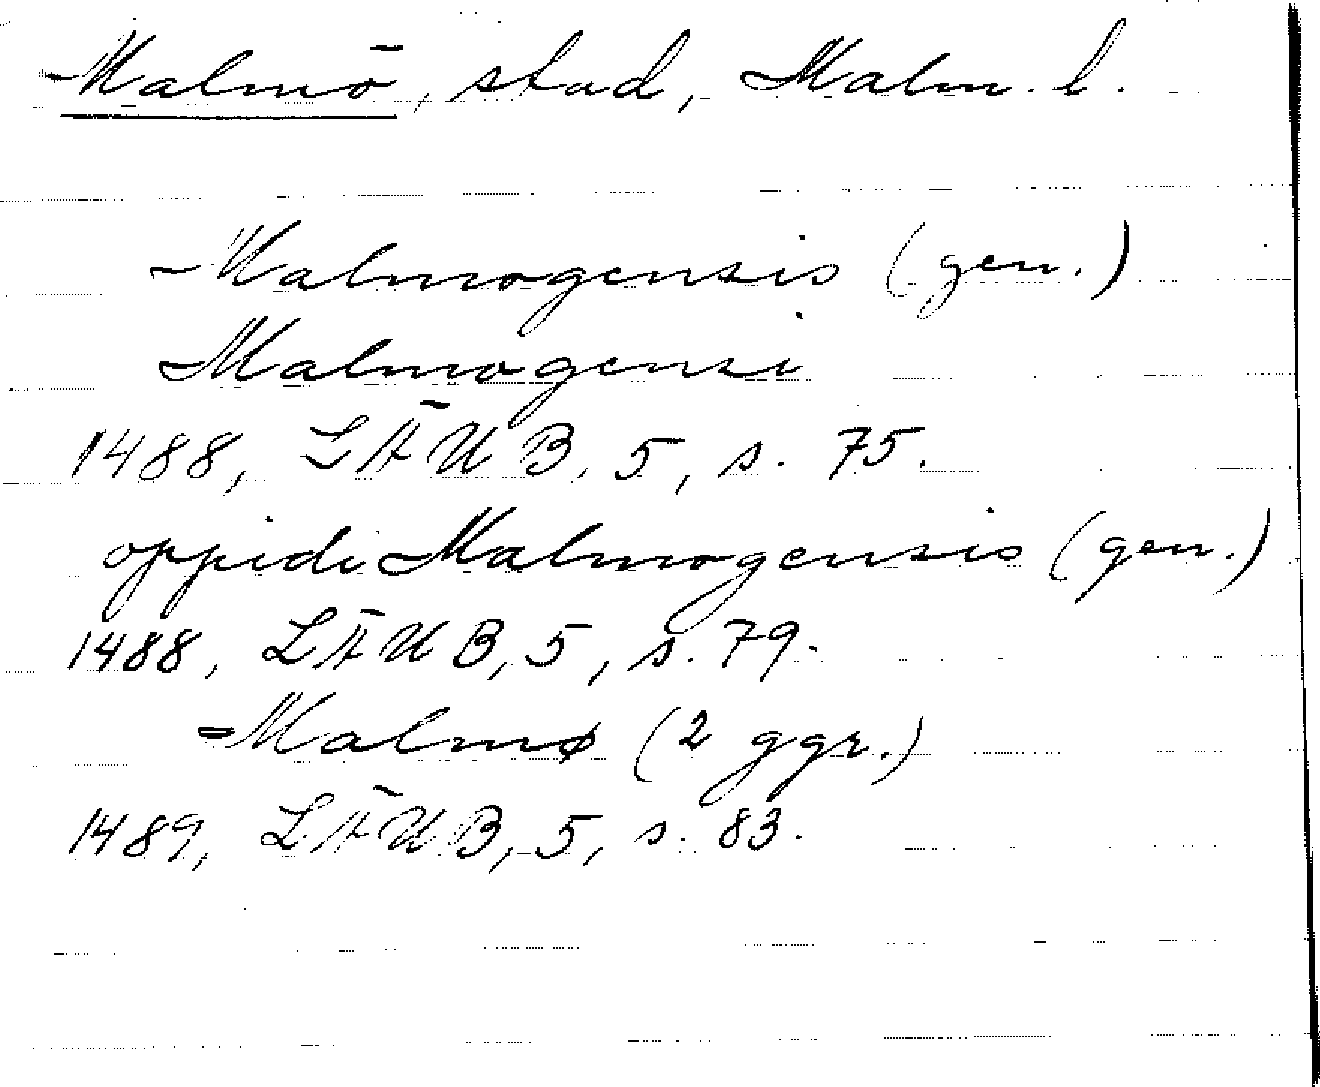 Malmö, stad, Malm. l.
Malmogensis (gen.)
Malmogensi
1488, LÄUB, 5, s. 75.
oppidi Malmogensis (gen.)
1488, LÄUB, 5, s. 79.
Malmø (2 ggr.)
1489, LÄUB, 5, s. 83.